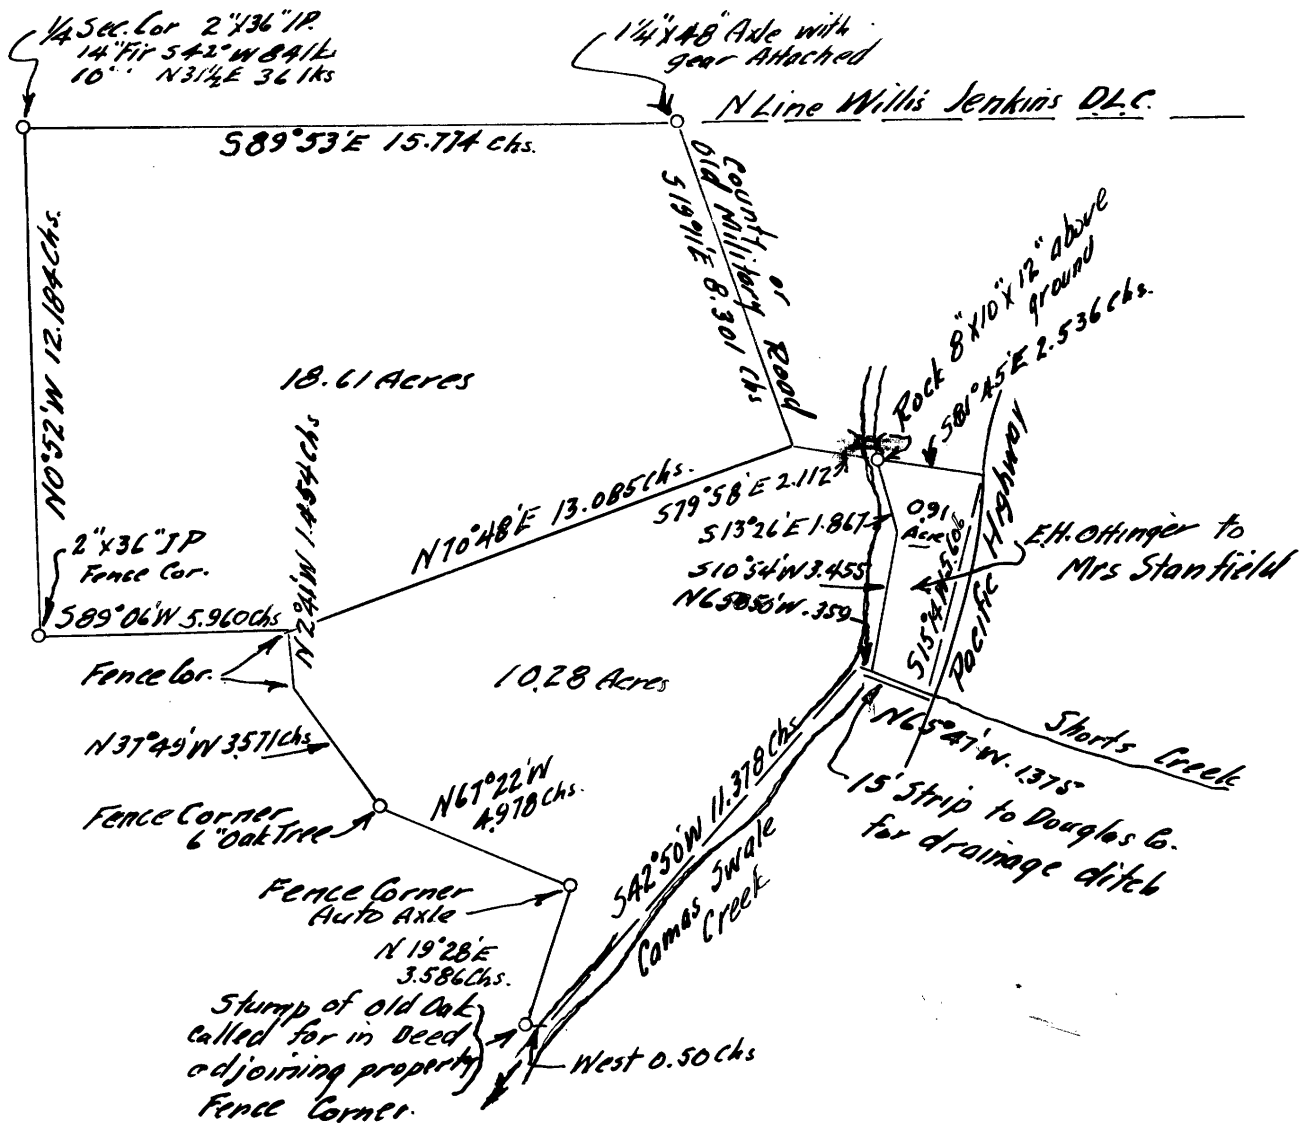 1/4 Sec. Cor 2"x36" I.P.
14" Fir S42°W 84 lk
10" " N31½E 36 lks
1¼"x48" Axle with
gear Attached
N Line Willis Jenkins D.L.C.
S89°53'E 15.774 Chs.
County or
Old Military Road
S19°11'E 8.301 Chs
N0°52'W 12.184 Chs.
18.61 Acres
Rock 8"x10"x12" above
ground
S81°45'E 2.536 Chs.
N2°41'W 1.454 Chs
N70°48'E 13.085 Chs.
S79°58'E 2.112
S13°26'E 1.867
S10°54'W 3.455
N65°50'W .359
0.91
Acre
S15°14'W 5.606
Pacific Highway
E.H. Ottinger to
Mrs Stanfield
2"x36" I P
Fence Cor.
S89°06'W 5.960 Chs
Fence Cor.
10.28 Acres
N37°49'W 3.571 Chs
N67°22'W
4.978 Chs.
Fence Corner
6" Oak Tree
S42°50'W 11.378 Chs
Camas Swale
Creek
N65°47'W. 1.375
Shorts Creek
15' Strip to Douglas Co.
for drainage ditch
Fence Corner
Auto Axle
N 19°28'E
3.586 Chs.
Stump of old Oak
called for in Deed
adjoining property
Fence Corner.
West 0.50 Chs